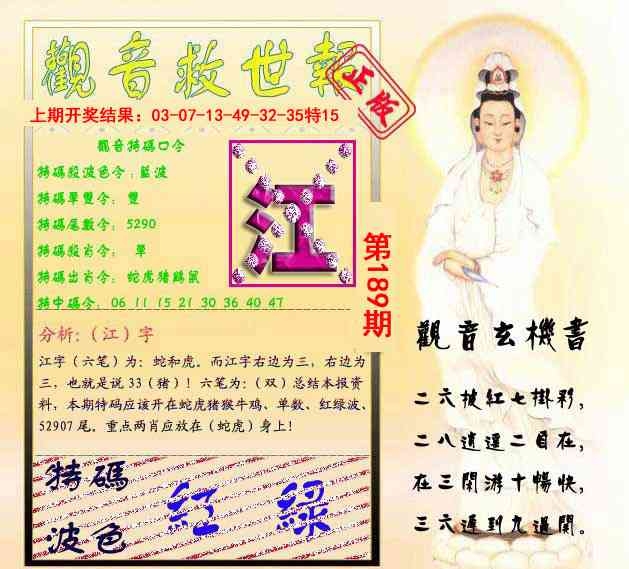 觀音救世報
正版
上期开奖结果：03-07-13-49-32-35特15
觀音特碼口令
特碼殺波色令：藍波
特碼單雙令： 雙
特碼尾數令： 5290
特碼殺肖令： 單
特碼出肖令： 蛇虎猪鷄鼠
特中碼令： 06 11 15 21 30 36 40 47
江
第189期
分析：（江）字
江字（六笔）为：蛇和虎。而江字右边为三，右边为
三，也就是说 33（猪）！六笔为：（双）总结本报资
料，本期特码应该开在蛇虎猪猴牛鸡、单数、红绿波、
52907 尾。重点两肖应放在（蛇虎）身上！
特碼
波色
紅 綠
觀音玄機書
二六披紅七掛彩，
二八逍遥二自在，
在三閑游十暢快，
三六遲到九過關。